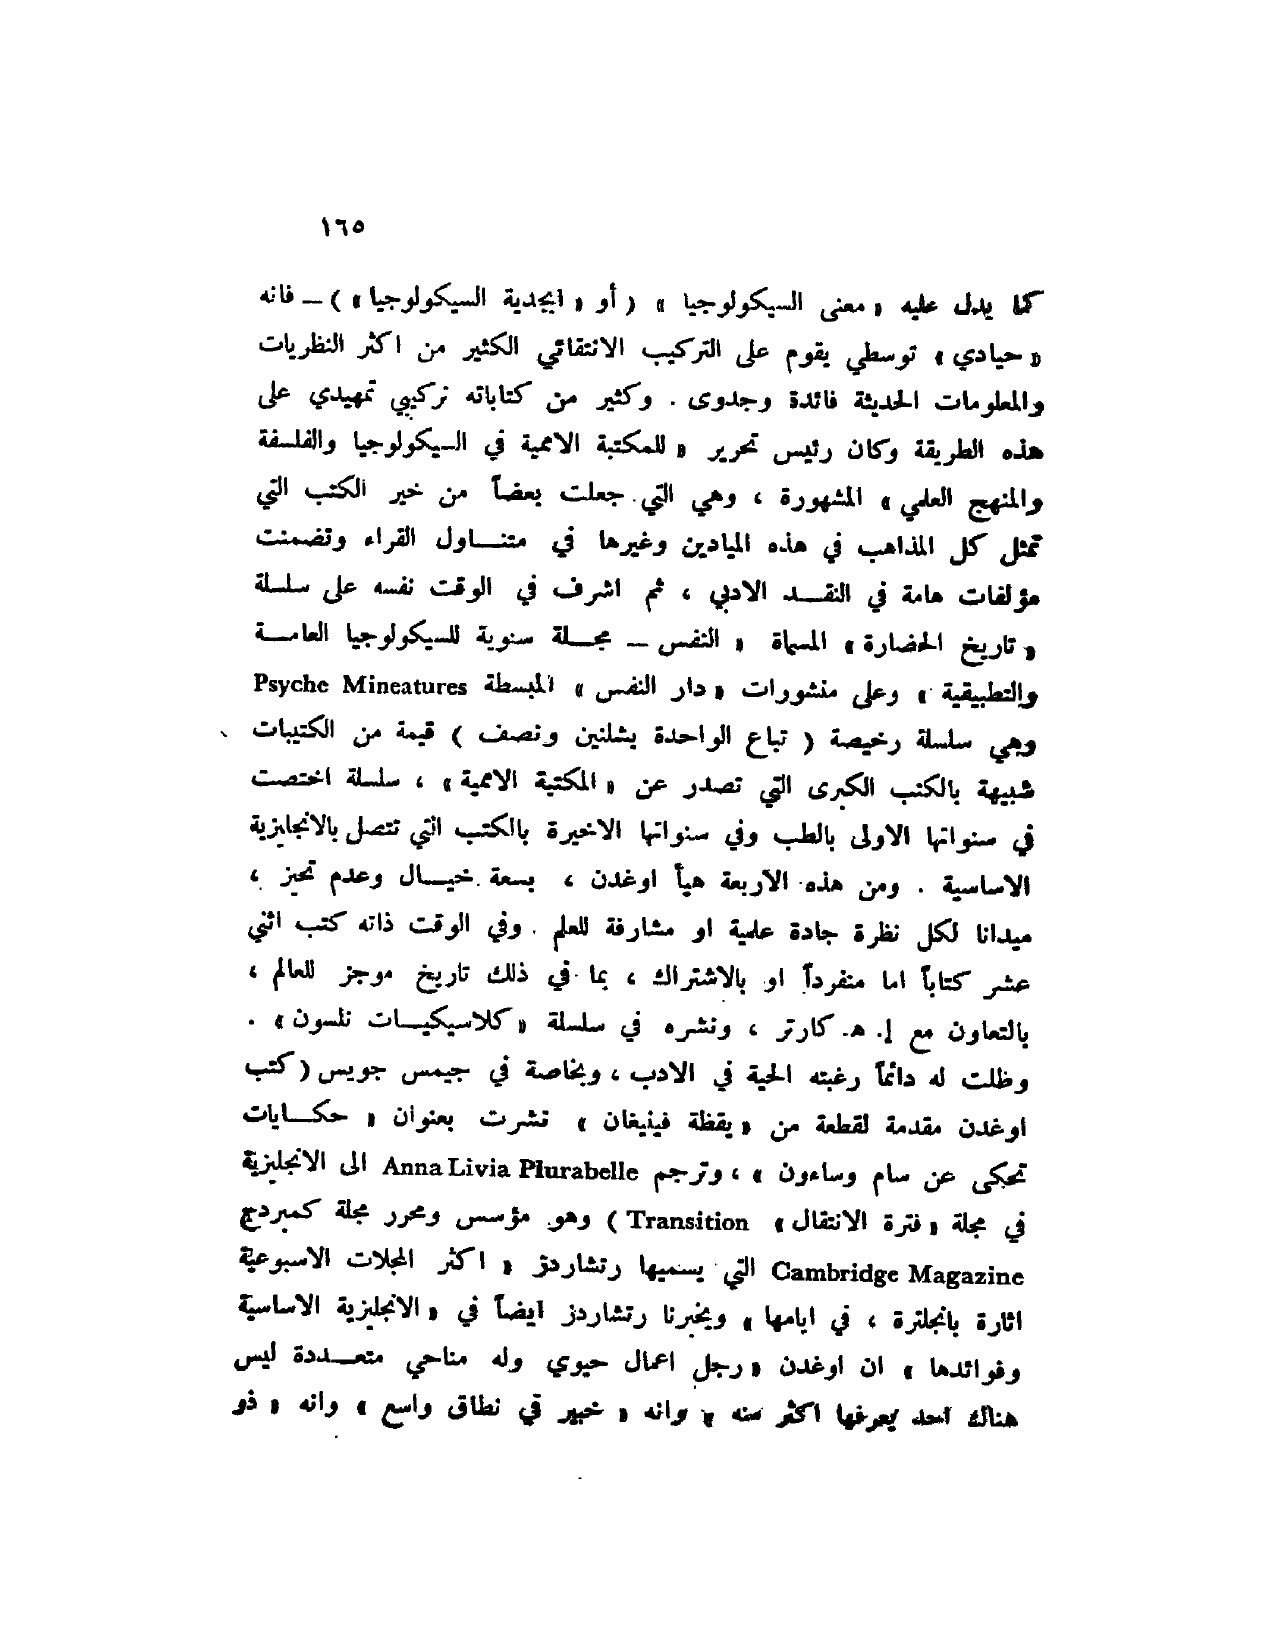 ١٦٥
كما يدل عليه « معنى السيكولوجيا » ( أو « ابجدية السيكولوجيا » ) ــ فانه
« حيادي » توسطي يقوم على التركيب الانتقائي الكثير من اكثر النظريات
والمعلومات الحديثة فائدة وجدوى . وكثير من كتاباته تركيبي تمهيدي على
هذه الطريقة وكان رئيس تحرير « للمكتبة الاممية في السيكولوجيا والفلسفة
والمنهج العلمي » المشهورة ، وهي التي جعلت بعضاً من خير الكتب التي
تمثل كل المذاهب في هذه الميادين وغيرها في متنــاول القراء وتضمنت
مؤلفات هامة في النقــد الادبي ، ثم اشرف في الوقت نفسه على سلسلة
« تاريخ الحضارة » المسماة « النفس ــ مجــلة سنوية للسيكولوجيا العامــة
والتطبيقية » وعلى منشورات « دار النفس » المبسطة Psyche Mineatures
وهي سلسلة رخيصة ( تباع الواحدة بشلنين ونصف ) قيمة من الكتيبات
شبيهة بالكتب الكبرى التي تصدر عن « المكتبة الاممية » ، سلسلة اختصت
في سنواتها الاولى بالطب وفي سنواتها الاخيرة بالكتب التي تتصل بالانجليزية
الاساسية . ومن هذه الاربعة هيأ اوغدن ، بسعة خيــال وعدم تحيز ،
ميدانا لكل نظرة جادة علمية او مشارفة للعلم . وفي الوقت ذاته كتب اثني
عشر كتاباً اما منفرداً او بالاشتراك ، بما في ذلك تاريخ موجز للعالم ،
بالتعاون مع إ. هـ. كارتر ، ونشره في سلسلة « كلاسيكيــات نلسون » .
وظلت له دائماً رغبته الحية في الادب ، وبخاصة في جيمس جويس ( كتب
اوغدن مقدمة لقطعة من « يقظة فينيغان » نشرت بعنوان « حكــايات
تحكى عن سام وساءون » ، وترجم Anna Livia Plurabelle الى الانجليزية
في مجلة « فترة الانتقال » Transition ) وهو مؤسس ومحرر مجلة كمبردج
Cambridge Magazine التي يسميها رتشاردز « اكثر المجلات الاسبوعية
اثارة بانجلترة ، في ايامها » ويخبرنا رتشاردز ايضاً في « الانجليزية الاساسية
وفوائدها » ان اوغدن « رجل اعمال حيوي وله مناحي متعــددة ليس
هناك احد يعرفها اكثر منه » وانه « خبير في نطاق واسع » وانه « ذو